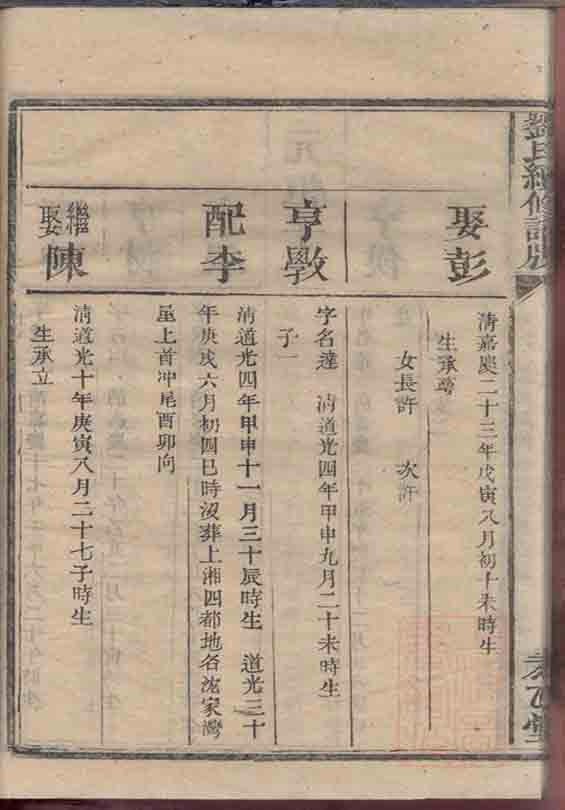 劉氏續修譜牒
娶彭
清嘉慶二十三年戊寅八月初十未時生
生承
女長許 次許
亨斆
字名達 清道光四年甲申九月二十未時生
子一
配李
清道光四年甲申十一月三十辰時生 道光三十
年庚戌六月初四巳時沒葬上湘四都地名沈家灣
屋上首冲尾酉卯向
繼娶陳
清道光十年庚寅八月二十七子時生
生承立